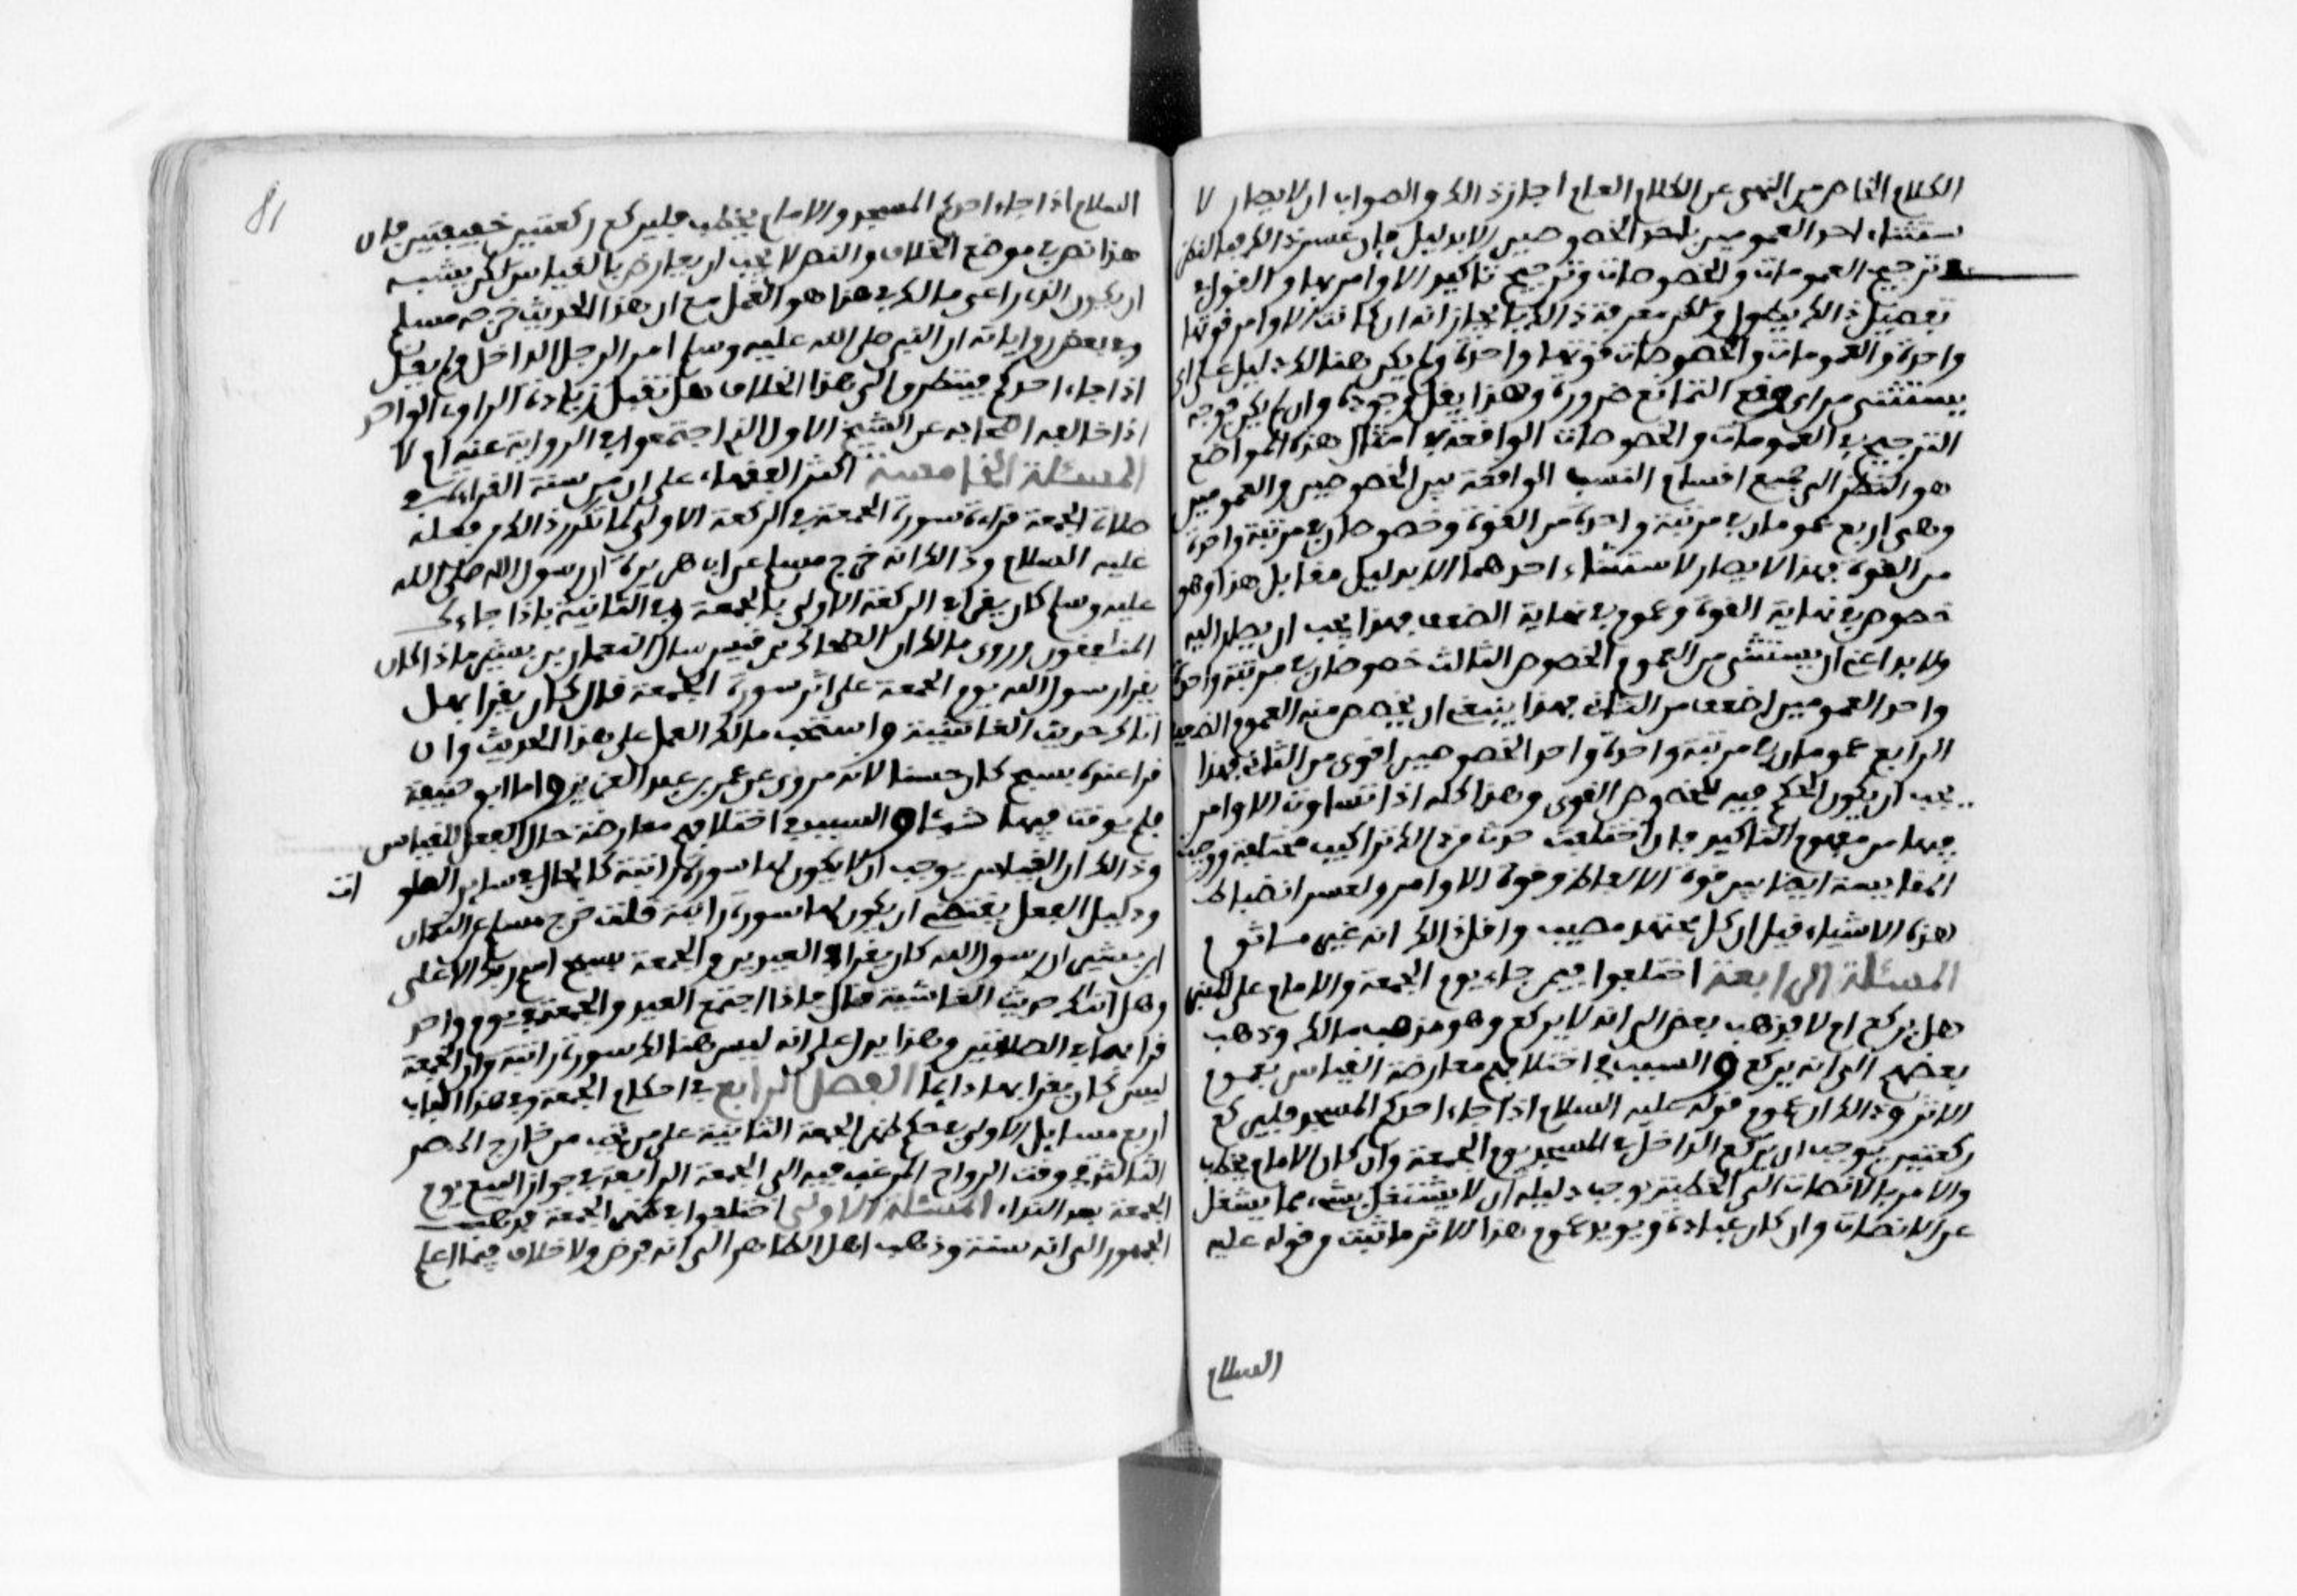 الكلام الخاص من النهي عن الكلام العام اجاز ذالك والصواب ان لا يصار لا
ستثناء احد العمومين باحد الخصوصين الا بدليل فان عسر ذالك فبالنظر
في ترجيح العمومات والخصوصات وترجيح تاكيد الاوامر بها والقول في
تفصيل ذالك يطول ولكن معرفة ذالك بايجاز انه ان كانت الاوامر قوتها
واحدة والعمومات والخصوصات قوتها واحدة ولم يكن هنالك دليل على اي
يستثنى من اي وقع التمانع ضرورة وهذا يقل وجوده وان لم يكن فوجه
الترجيح في العمومات والخصوصات الواقعة في امثال هذه المواضع
هو النظر الى جميع اقسام النسب الواقعة بين الخصوصين والعمومين
وهي اربع عمومان في مرتبة واحدة من القوة وخصوصان في مرتبة واحدة
من القوة فهذا لا يصار لاستثناء احدهما الا بدليل مقابل هذا وهو
خصوص في نهاية القوة وعموم في نهاية الضعف فهذا يجب ان يصار اليه
ولا بد اعني ان يستثنى من العموم الخصوص الثالث خصوصان في مرتبة واحدة
واحد العمومين اضعف من الثاني فهذا ينبغي ان يخصص منه العموم الضعيف
الرابع عمومان في مرتبة واحدة واحد الخصوصين اقوى من الثاني فهذا
يجب ان يكون الحكم فيه للخصوص القوي وهذا كله اذا تساوت الاوامر
فيها من مفهوم التاكيد فان اختلفت حدثت من ذالك تراكيب مختلفة ووجبت
المقايسة ايضا بين قوة الالفاظ وقوة الاوامر ولعسر انضباط
هذه الاشياء قيل ان كل مجتهد مصيب واقل ذالك انه غير ماثوم
المسئلة الرابعة اختلفوا فيمن جاء يوم الجمعة والامام على المنبر
هل يركع ام لا فذهب بعض الى انه لا يركع وهو مذهب مالك وذهب
بعضهم الى انه يركع والسبب في اختلافهم معارضة القياس لعموم
الاثر وذالك ان عموم قوله عليه السلام اذا جاء احدكم المسجد فليركع
ركعتين يوجب ان يركع الداخل في المسجد يوم الجمعة وان كان الامام يخطب
والامر بالانصات الى الخطبة يوجب دليله ان لا يشتغل بشيء مما يشغل
عن الانصات وان كان عبادة ويويد عموم هذا الاثر ما ثبت من قوله عليه
السلام
81
السلام اذا جاء احدكم المسجد والامام يخطب فليركع ركعتين خفيفتين فان
هذا نص في موضع الخلاف والنص لا يجب ان يعارض بالقياس لكن يشبه
ان يكون الذي راعى مالك في هذا هو العمل مع ان هذا الحديث خرجه مسلم
وفي بعض رواياته ان النبي صلى الله عليه وسلم امر الرجل الداخل ولم يقل
اذا جاء احدكم فيتطرق الى هذا الخلاف هل تقبل زيادة الراوي الواحد
اذا خالفه اصحابه عن الشيخ الاول الذي اجتمعوا في الرواية عنه ام لا
المسئلة الخامسة اكثر الفقهاء على ان من سنة القراءة في
صلاة الجمعة قراءة سورة الجمعة في الركعة الاولى لما تكرر ذالك من فعله
عليه السلام وذالك انه خرج مسلم عن ابي هريرة ان رسول الله صلى الله
عليه وسلم كان يقرا في الركعة الاولى بالجمعة وفي الثانية باذا جاءك
المنافقون وروى مالك ان الضحاك بن قيس سال النعمان بن بشير ماذا كان
يقرا رسول الله يوم الجمعة على اثر سورة الجمعة قال كان يقرا بهل
اتاك حديث الغاشية واستحب مالك العمل على هذا الحديث وان
قرا عنده بسبح كان حسنا لانه مروي عن عمر بن عبد العزيز واما ابو حنيفة
فلم يوقت فيها شيئا والسبب في اختلافهم معارضة حال الفعل للقياس
وذالك ان القياس يوجب ان لا يكون لها سورة راتبة كالحال في ساير الصلو ات
ودليل الفعل يقتضي ان يكون لها سورة راتبة قلت خرج مسلم عن النعمان
ابن بشير ان رسول الله كان يقرا في العيدين والجمعة بسبح اسم ربك الاعلى
وهل اتاك حديث الغاشية قال فاذا اجتمع العيد والجمعة في يوم واحد
قرا بهما في الصلاتين وهذا يدل على انه ليس هنالك سورة راتبة وان الجمعة
ليس كان يقرا بها دايما الفصل الرابع في احكام الجمعة وفي هذا الباب
اربع مسايل الاولى في حكم طهر الجمعة الثانية على من تجب من خارج المصر
الثالثة في وقت الرواح المرغب فيه الى الجمعة الرابعة في جواز البيع يوم
الجمعة بعد النداء المسئلة الاولى اختلفوا في طهر الجمعة فذهب
الجمهور الى انه سنة وذهب اهل الظاهر الى انه فرض ولا خلاف فيما اعلم